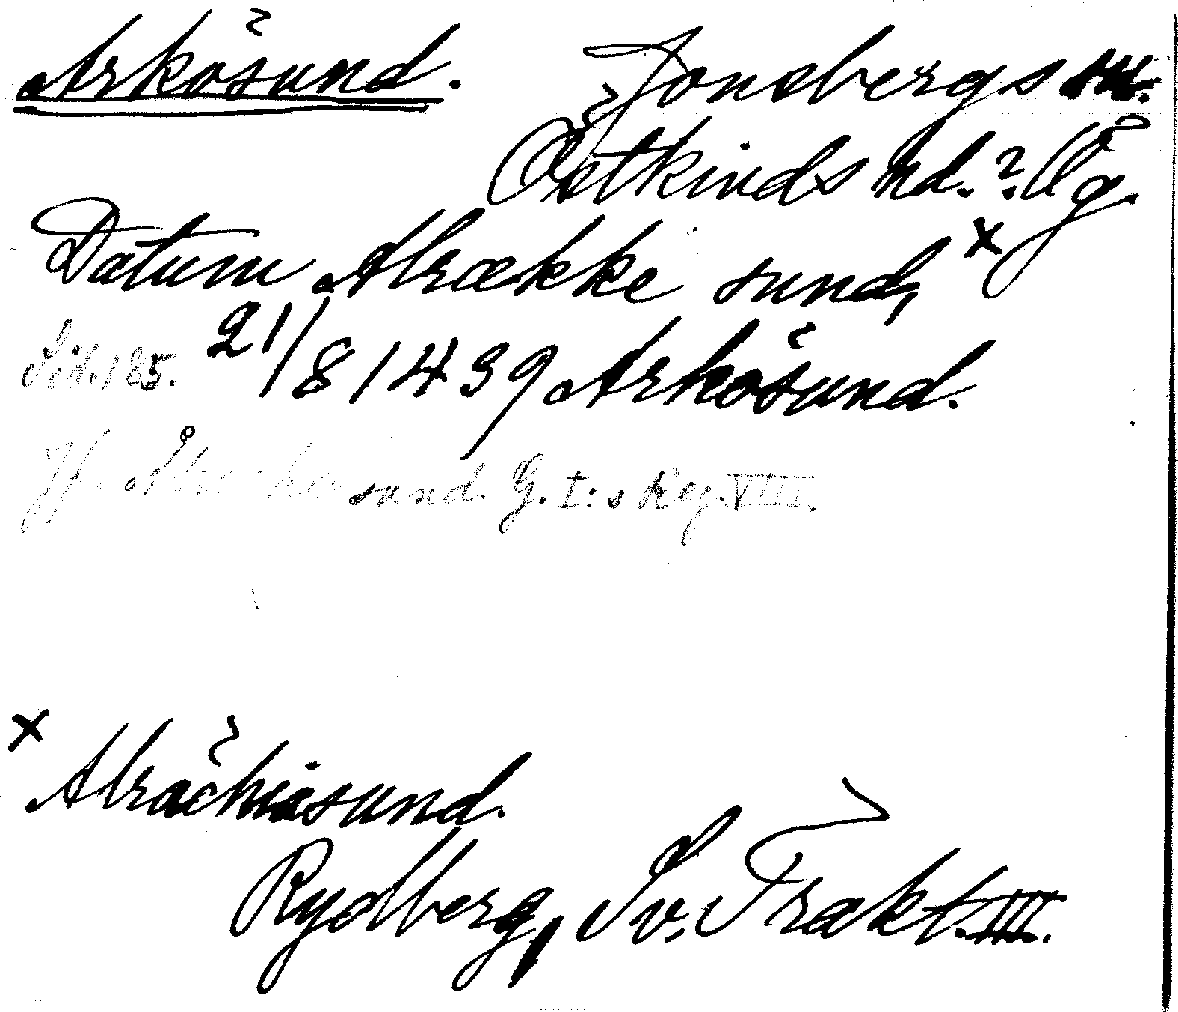 Arkösund. Jonsbergs sn.
Östkinds hd.? Ög.
Datum Alrække sund, x
Sid. 185. 21/8 1439 Arkösund.
sund. G. I:s Reg. VIII.
x Alrächiasund.
Rydberg, Sv. Trakt. III.